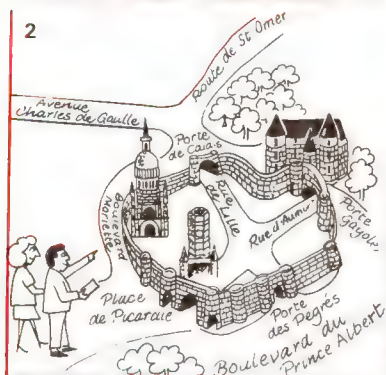 2
Route de St Omer
Avenue
Charles de Gaulle
Porte
de Calais
Boulevard
Mariette
Rue
de Lille
Rue d'Aumont
Porte
Gayole
Place
de Picardie
Porte
des Degrés
Boulevard du
Prince Albert